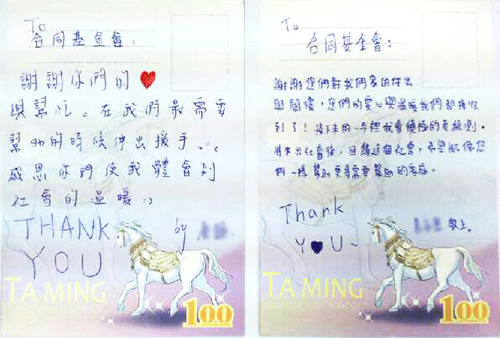 To
合同基金會:
謝謝你們的❤
與幫忙。在我們最需要
幫助的時候伸出援手...
感恩你們使我體會到
社會的溫暖:)
THANK
YOU
by
TA MING
100
To
合同基金會:
謝謝您們對我們家的付出
與關懷,您們的愛心與溫暖我們都接收
到了!
將來出社會後,回饋這個社會,希望能像您
們一樣幫助更多需要幫助的家庭。
Thank
Y♥U~
敬上。
TA MING
100